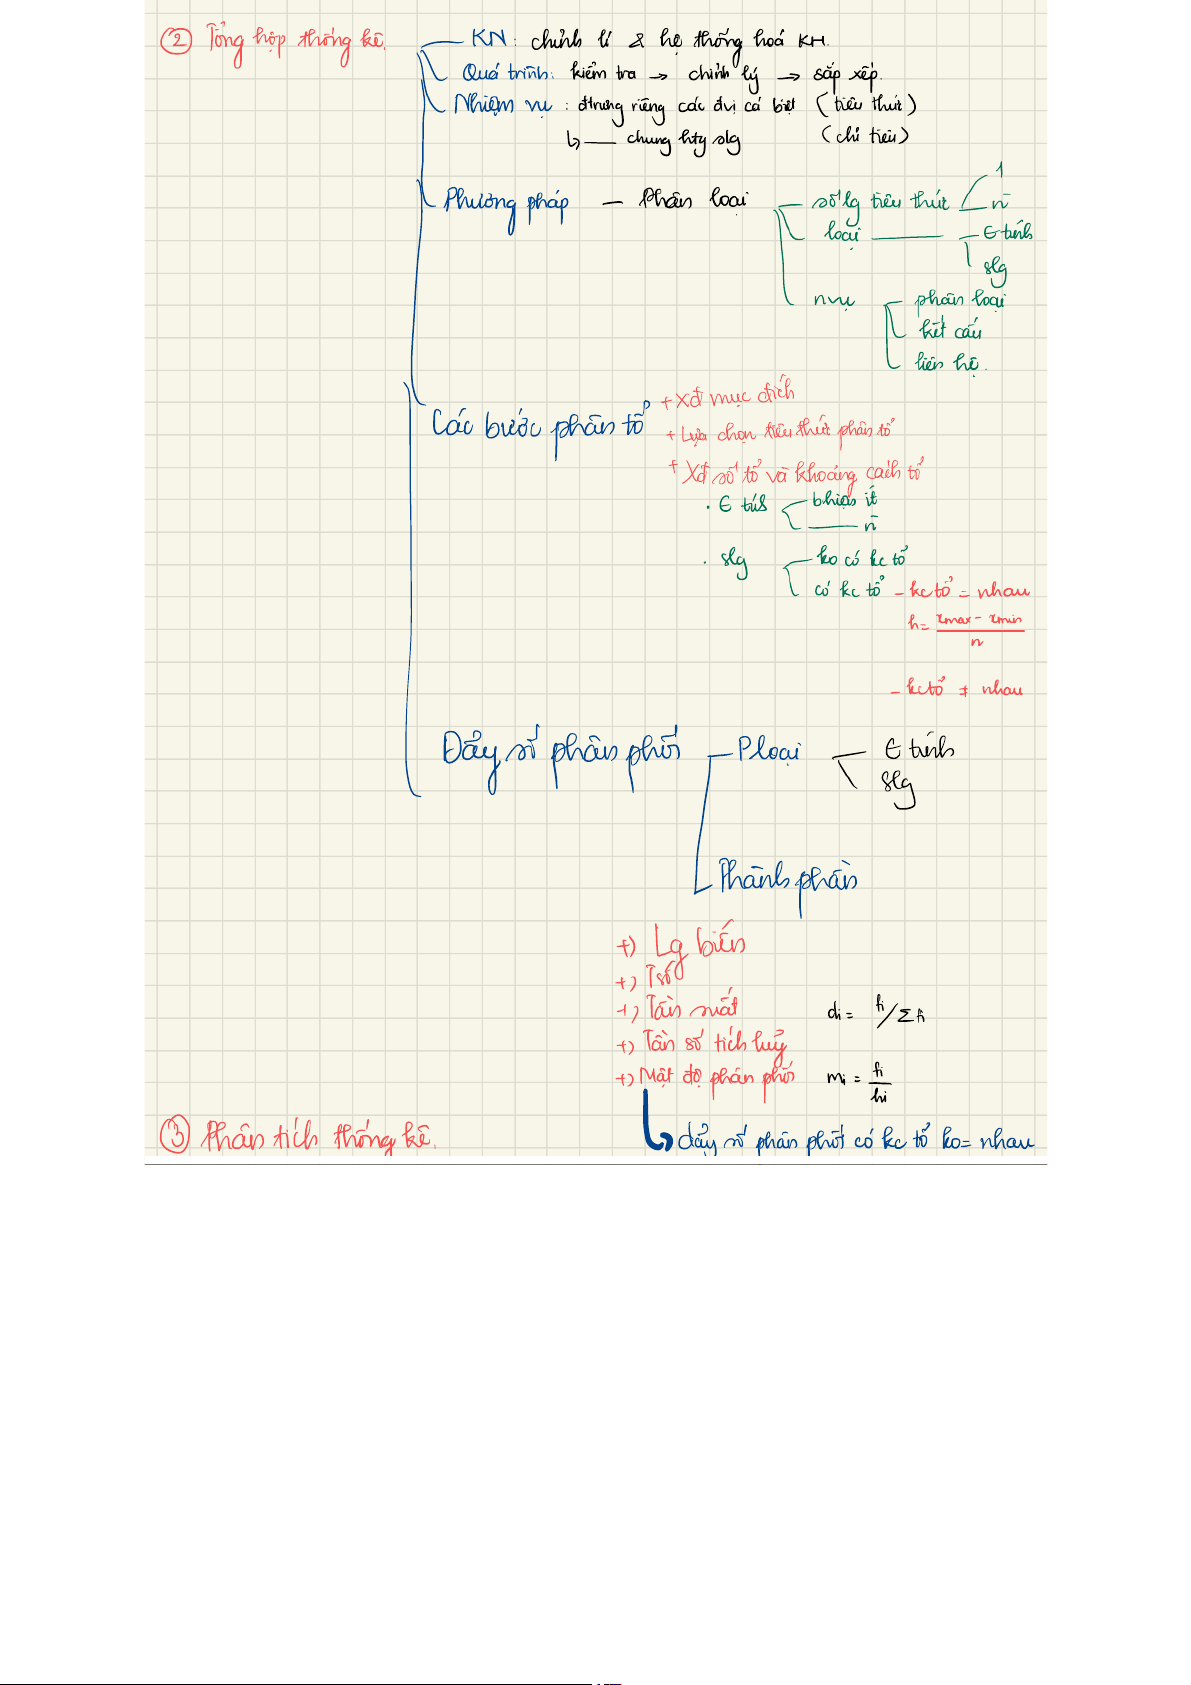 ② Tổng hợp thống kê.
KN: chỉnh lí & hệ thống hoá KH.
Quá trình: kiểm tra → chỉnh lý → sắp xếp.
Nhiệm vụ: đtrưng riêng các đvị cá biệt (tiêu thức)
↳ — chung htg slg (chỉ tiêu)
Phương pháp — Phân loại
số lg tiêu thức
1
n̄
loại
t tính
slg
nvụ
phân loại
kết cấu
liên hệ.
Các bước phân tổ
+ Xđ mục đích
+ Lựa chọn tiêu thức phân tổ
+ Xđ số tổ và khoảng cách tổ
bhiện ít
n̄
. slg
ko có kc tổ
có kc tổ - kc tổ = nhau
h = xmax - xmin / n
- kc tổ ≠ nhau
Dẩy số phân phối - Ploại
t tính
slg
Thành phần
+) Lg biến
+) Tsố
+) Tần suất di = fi/Σfi
+) Tần số tích luỹ
+) Mật độ phân phối mi = fi/hi
↳ dẩy số phân phối có kc tổ ko = nhau
③ Phân tích thống kê.